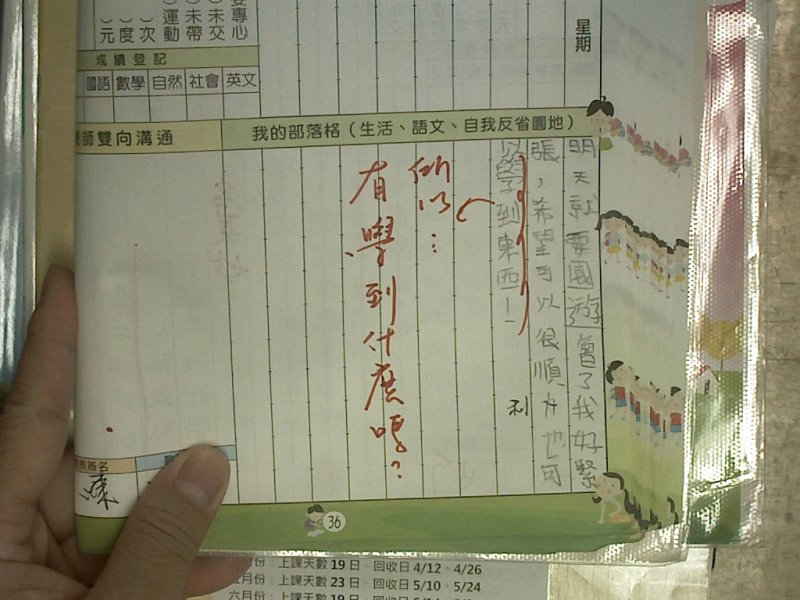 星期
專心
）未交
）未帶
）運動
）次
）度
）元
成績登記
國語 數學 自然 社會 英文
師雙向溝通
我的部落格（生活、語文、自我反省園地）
明天就要園遊會了我好緊
張，希望可以很順升也可
利
以學到東西！
所以…
有學到什麼嗎？
簽名
36
月份：上課天數 19 日、回收日 4/12、4/26
月份：上課天數 23 日、回收日 5/10、5/24
六月份：上課天數 19 日、回收日